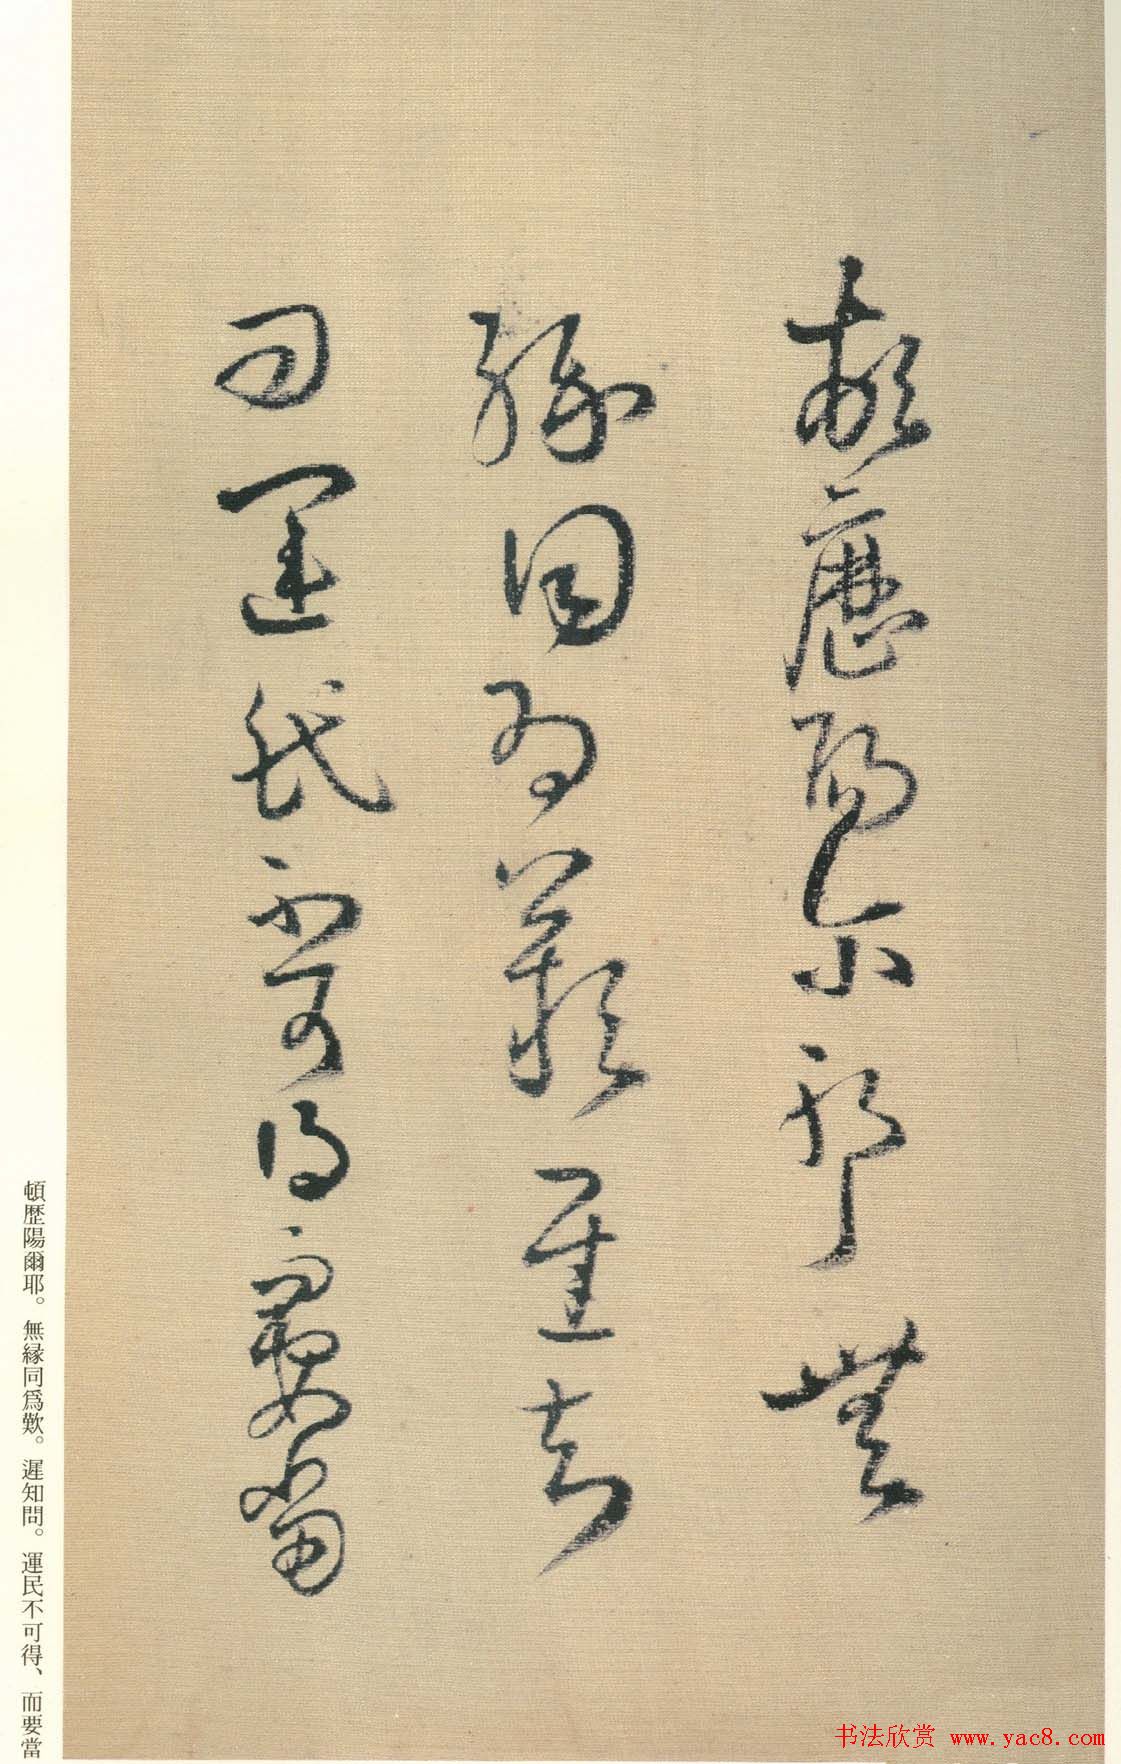 頓歷陽爾耶無
緣同為歎遲知
問運民不可得而要當
頓歴陽爾耶。無縁同爲歎。遲知問。運民不可得、而要當
书法欣赏 www.yac8.com